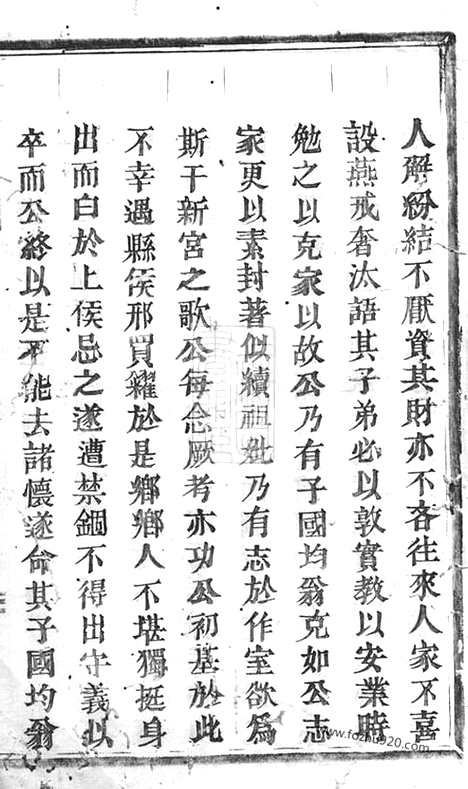 人解紛結不厭資其財亦不吝往來人家不喜
設燕戒奢汰語其子弟必以敦實教以安業時
勉之以克家以故公乃有子國均翁克如公志
家更以素封著似續祖妣乃有志於作室欲為
斯干新宮之歌公每念厥考亦功公初基於此
不幸遇縣侯邢買糴於是鄉鄉人不堪獨挺身
出而白於上侯忌之遂遭禁錮不得出守義以
卒而公終以是不能去諸懷遂命其子國均翁
www.fozhu920.com